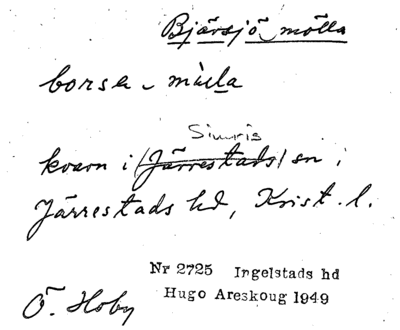 Bjärsjö mölla
borsa mŭla
Simris
kvarn i (Järrestads) sn i
Järrestads hd, Krist. l.
Nr 2725 Ingelstads hd
Hugo Areskoug 1949
Ö. Hoby